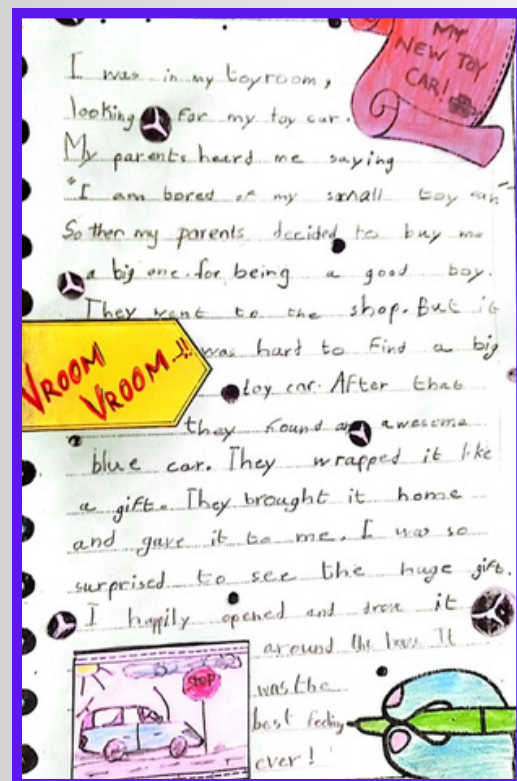 MY
NEW TOY
CAR!
I was in my toyroom,
looking for my toy car.
My parents heard me saying
"I am bored of my small toy car"
So then my parents decided to buy me
a big one. for being a good boy.
They went to the shop. But it
was hard to find a big
toy car. After that
they found an awesome
blue car. They wrapped it like
a gift. They brought it home
and gave it to me. I was so
surprised to see the huge gift.
I happily opened and drove it
around the house It
was the
best feeling
ever!
VROOM
VROOM..!!
STOP